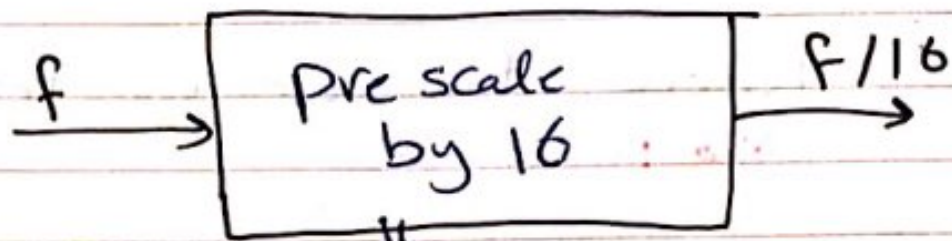 f
prescale
by 16
f/16